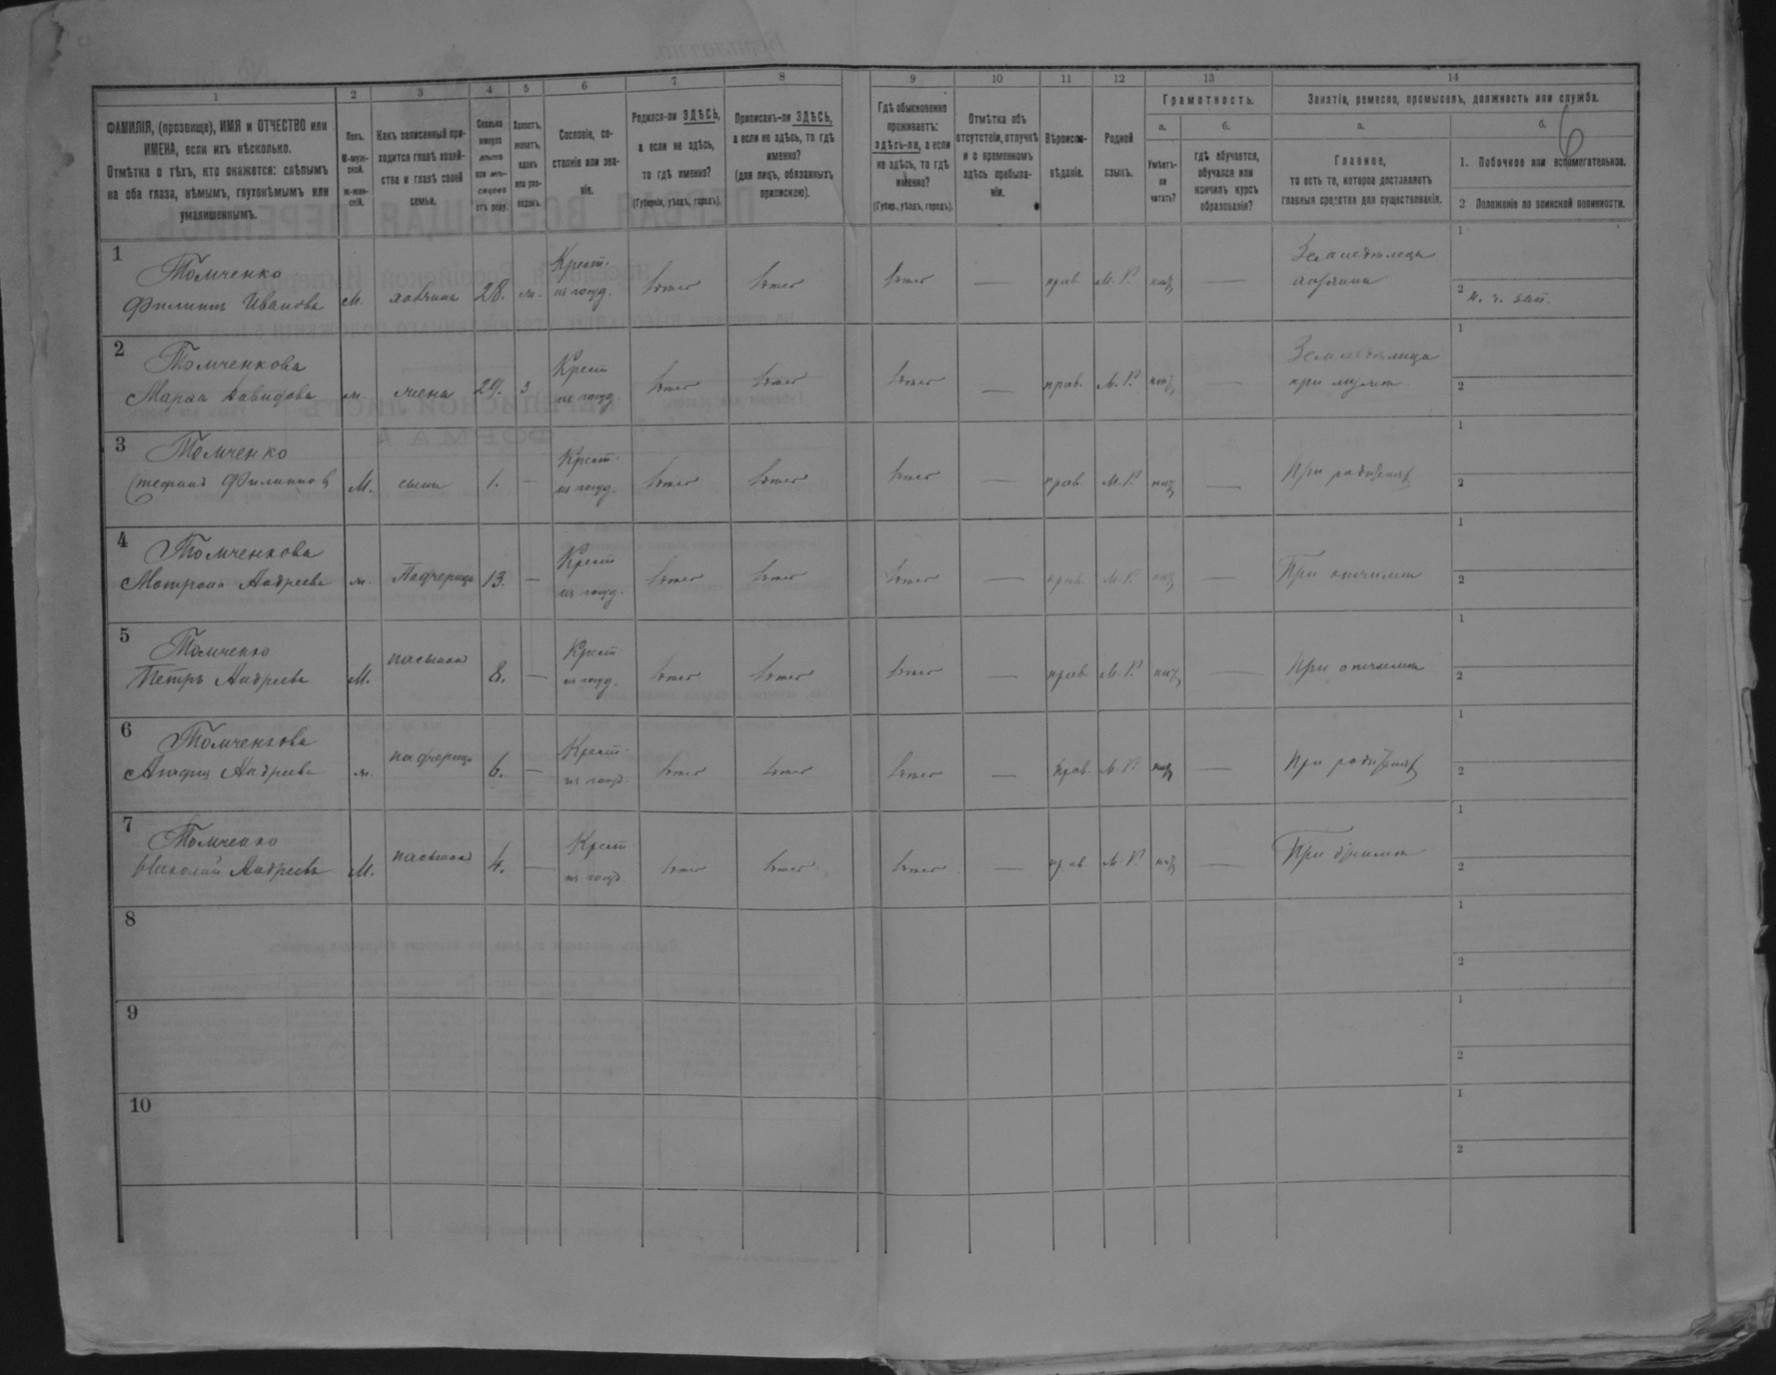 1 2 3 4 5 6 7 8 9 10 11 12 13 14
ФАМИЛІЯ, (прозвище), ИМЯ и ОТЧЕСТВО или
ИМЕНА, если ихъ нѣсколько.
Отмѣтка о тѣхъ, кто окажется: слѣпымъ
на оба глаза, нѣмымъ, глухонѣмымъ или
умалишеннымъ.
Полъ.
М-муж-
ской.
ж-жен-
скій.
Какъ записанный при-
ходится главѣ хозяй-
ства и главѣ своей
семьи.
Сколько
минуло
лѣтъ
или мѣ-
сяцевъ
отъ роду.
Холостъ,
женатъ,
вдовъ
или раз-
веденъ.
Сословіе, со-
стояніе или зва-
ніе.
Родился-ли ЗДѢСЬ,
а если не здѣсь,
то гдѣ именно?
(Губернія, уѣздъ, городъ).
Приписанъ-ли ЗДѢСЬ,
а если не здѣсь, то гдѣ
именно?
(для лицъ, обязанныхъ
припискою).
Гдѣ обыкновенно
проживаетъ:
здѣсь-ли, а если
не здѣсь, то гдѣ
именно?
(Губер., уѣздъ, городъ).
Отмѣтка объ
отсутствіи, отлучкѣ
и о временномъ
здѣсь пребыва-
ніи.
Вѣроиспо-
вѣданіе.
Родной
языкъ.
Грамотность.
а.
Умѣетъ-
ли
читать?
б.
гдѣ обучается,
обучался или
кончилъ курсъ
образованія?
Занятія, ремесло, промыселъ, должность или служба.
а.
Главное,
то есть то, которое доставляетъ
главныя средства для существованія.
б.
6
1. Побочное или вспомогательное.
2 Положеніе по воинской повинности.
1 Томченко Крест. Земледѣлецъ 1
Филиппъ Ивановъ М. хозяинъ 28. ж. из госуд. здѣсь здѣсь здѣсь — прав. М. Р. нѣт — хозяинъ 2
2 Томченкова Крест Земледѣлица 1
Марѳа Давидова ж жена 29. з из госуд здѣсь здѣсь здѣсь — прав. М. Р. нѣт — при мужѣ 2
3 Томченко Крест. 1
Стефанъ Филиппов М. сынъ 1. — из госуд. здѣсь здѣсь здѣсь — прав. М. Р. нѣт — При родителях 2
4 Томченкова Крест 1
Матрона Андреева ж. Падчерица 13. — из госуд. здѣсь здѣсь здѣсь — прав. М. Р. нѣт — При отчимѣ 2
5 Томченко Крест 1
Петръ Андреевъ М. пасынокъ 8. — из госуд. здѣсь здѣсь здѣсь — прав. М. Р. нѣт — При отчимѣ 2
6 Томченкова Крест. 1
Андреева ж. падчерица 6. — из госуд. здѣсь здѣсь здѣсь — Прав. М. Р. нѣт — При родителях 2
7 Томченко Крест 1
Николай Андреевъ М. пасынокъ 4. — из госуд. здѣсь здѣсь здѣсь — прав. М. Р. нѣт — При 2
8 1
2
9 1
2
10 1
2